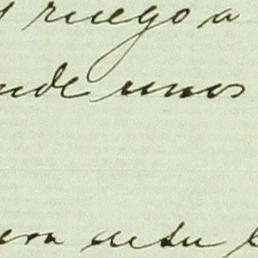 y ruego a
nde unos
era de su